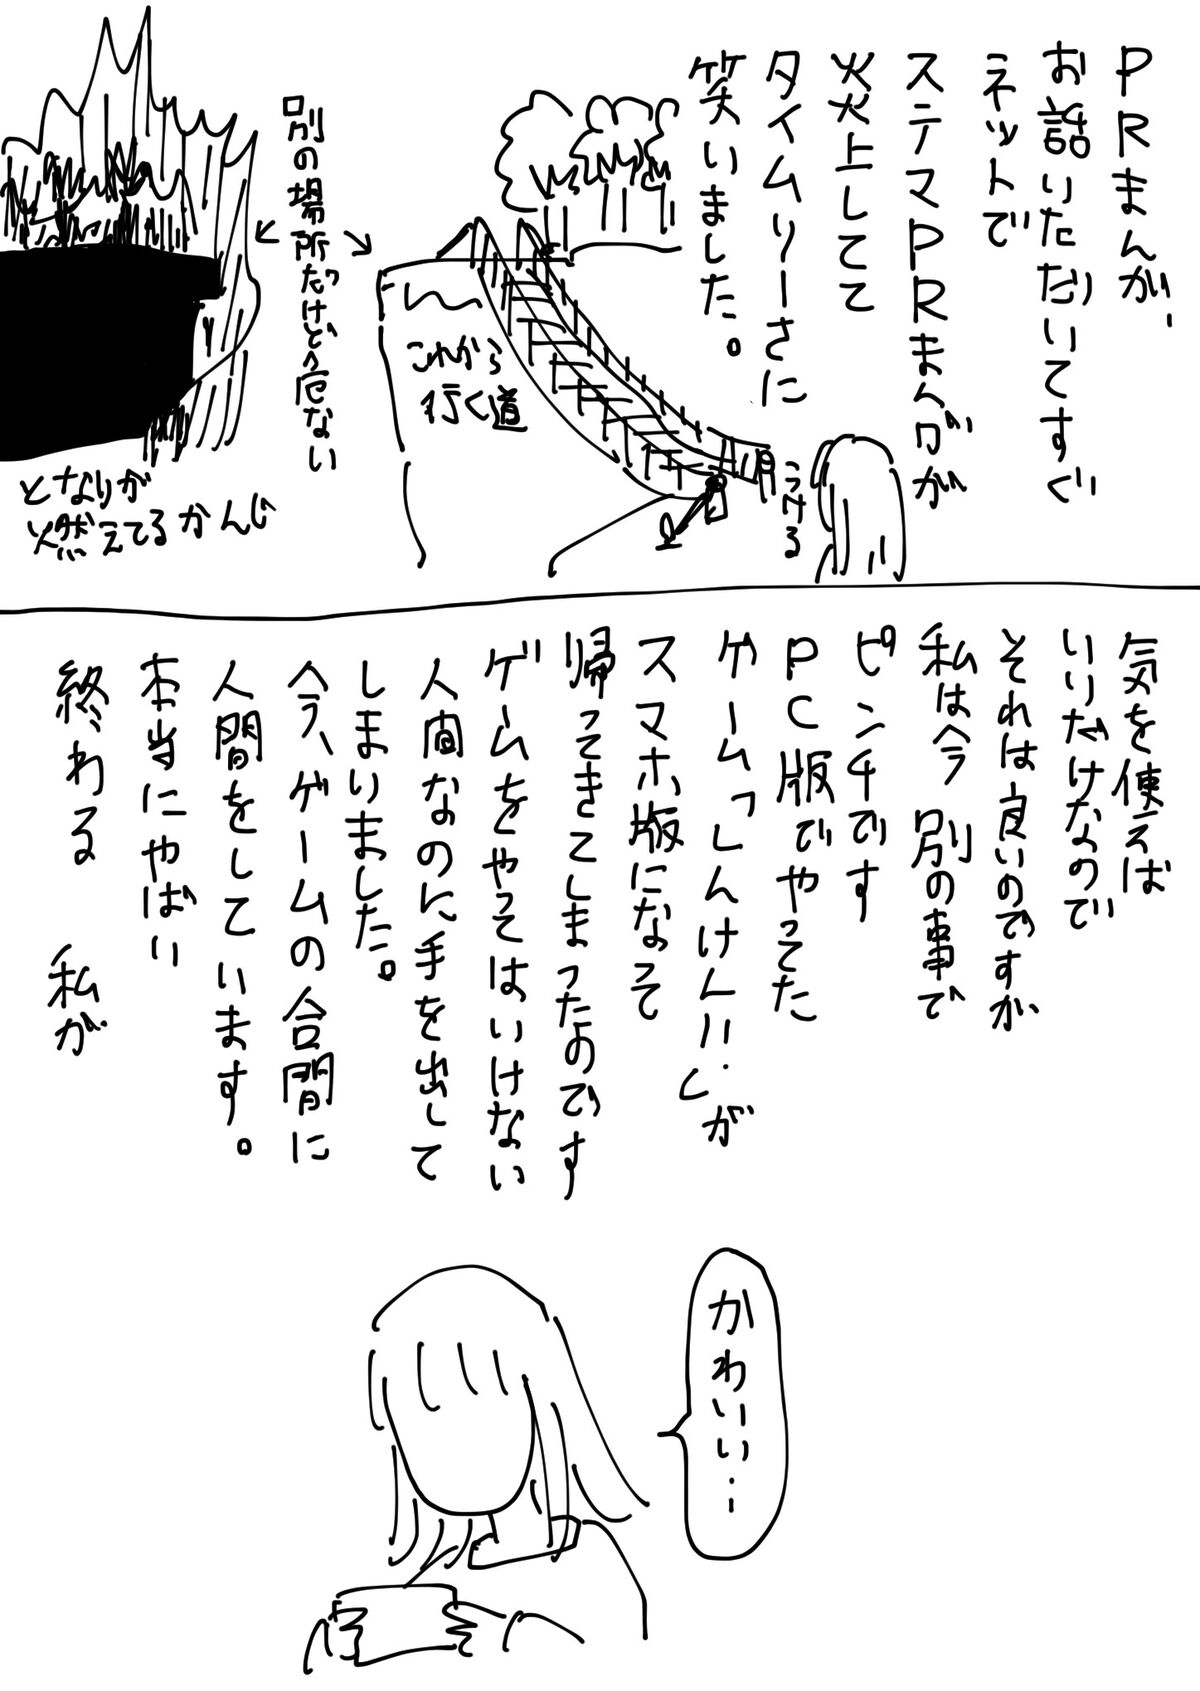 PRまんが、
お話いただいてすぐ
ネットで
ステマPRまんがが
火炎上してて
タイムリーさに
笑いました。
うける
これから
行く道
別の場所だけど危ない
となりが
燃えてるかんじ
気を使えば
いいだけなので
それは良いのですが
私は今別の事で
ピンチです
PC版でやってた
ゲーム「しんけん!!」が
スマホ版になって
帰ってきてしまったのです
ゲームをやってはいけない
人間なのに手を出して
しまいました。
今、ゲームの合間に
人間をしています。
本当にやばい
終わる 私が
かわいい…